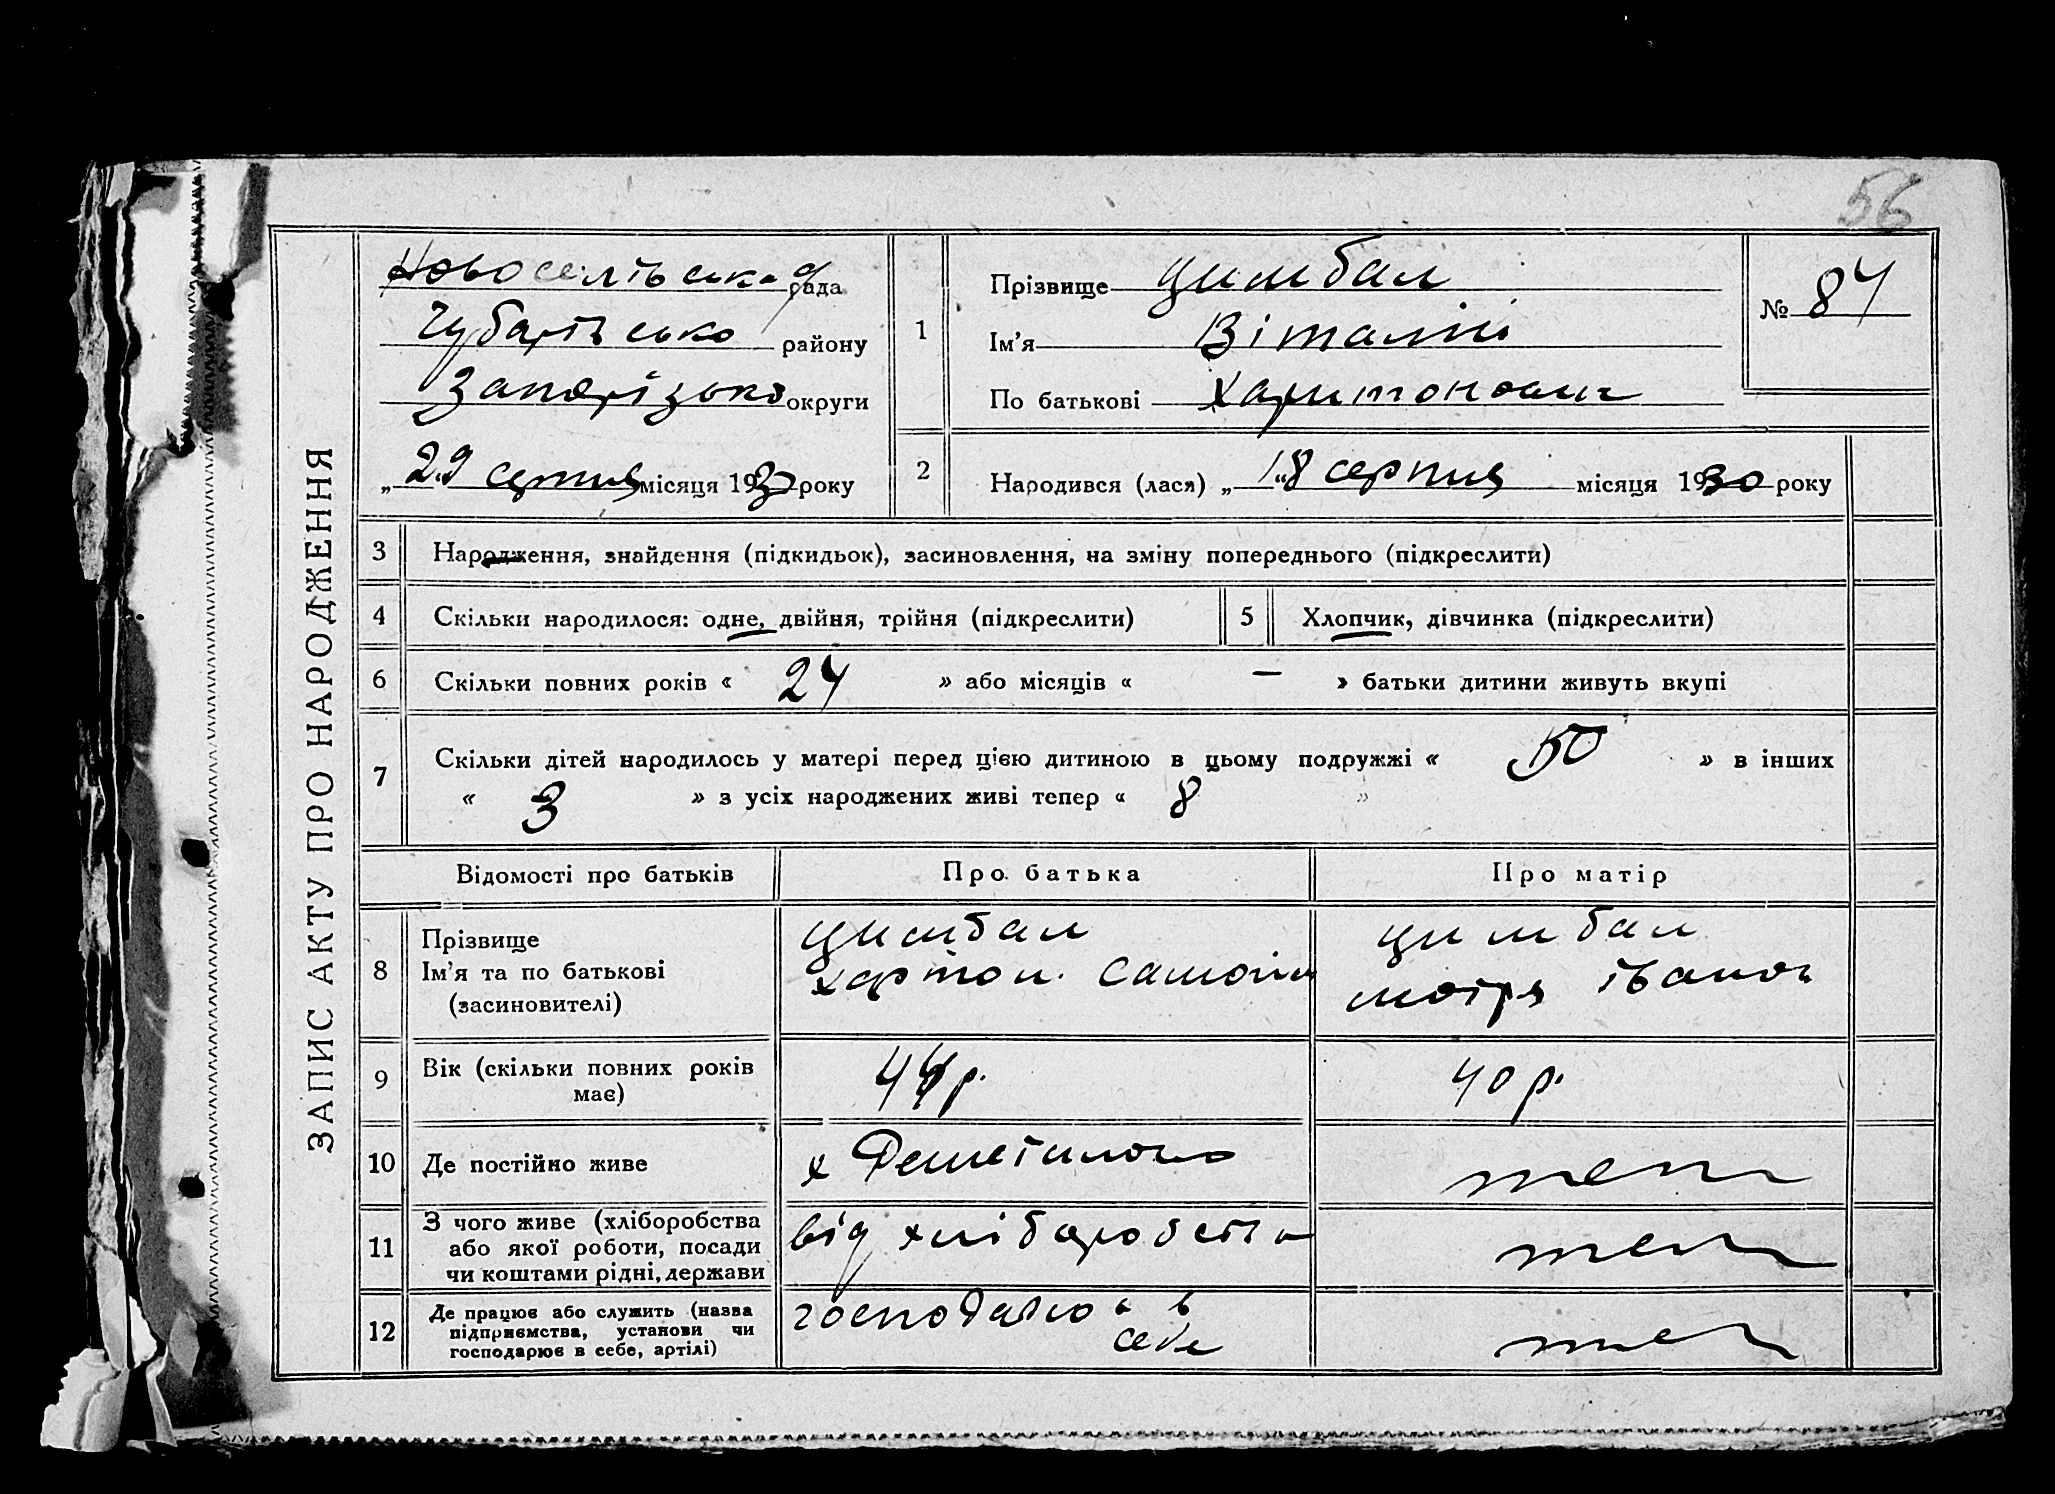 56
ЗАПИС АКТУ ПРО НАРОДЖЕННЯ
Новоселівська рада
Чубарівсько району
Запорізько округи
„29 серпня місяця 1930 року
1
Прізвище Цимбал
Ім’я Віталій
По батькові Харитонович
№ 84
2
Народився (лася) „18“ серпня місяця 1930 року
3 Народження, знайдення (підкидьок), засиновлення, на зміну попереднього (підкреслити)
4 Скільки народилося: одне, двійня, трійня (підкреслити)
5 Хлопчик, дівчинка (підкреслити)
6 Скільки повних років « 24 » або місяців « — » батьки дитини живуть вкупі
7 Скільки дітей народилось у матері перед цією дитиною в цьому подружжі « » в інших
« 3 » з усіх народжених живі тепер « 8 »
Відомості про батьків Про батька Про матір
8
Прізвище
Ім’я та по батькові
(засиновителі)
Цимбал
Хартон. Самойл
Цимбал
Мотря Іванов
9
Вік (скільки повних років
має)
44р.
40 р.
10 Де постійно живе
х
теж
11
З чого живе (хліборобства
або якої роботи, посади
чи коштами рідні, держави
від хліборобства
теж
12
Де працює або служить (назва
підприємства, установи чи
господарює в себе, артілі)
господарює в
себе
теж